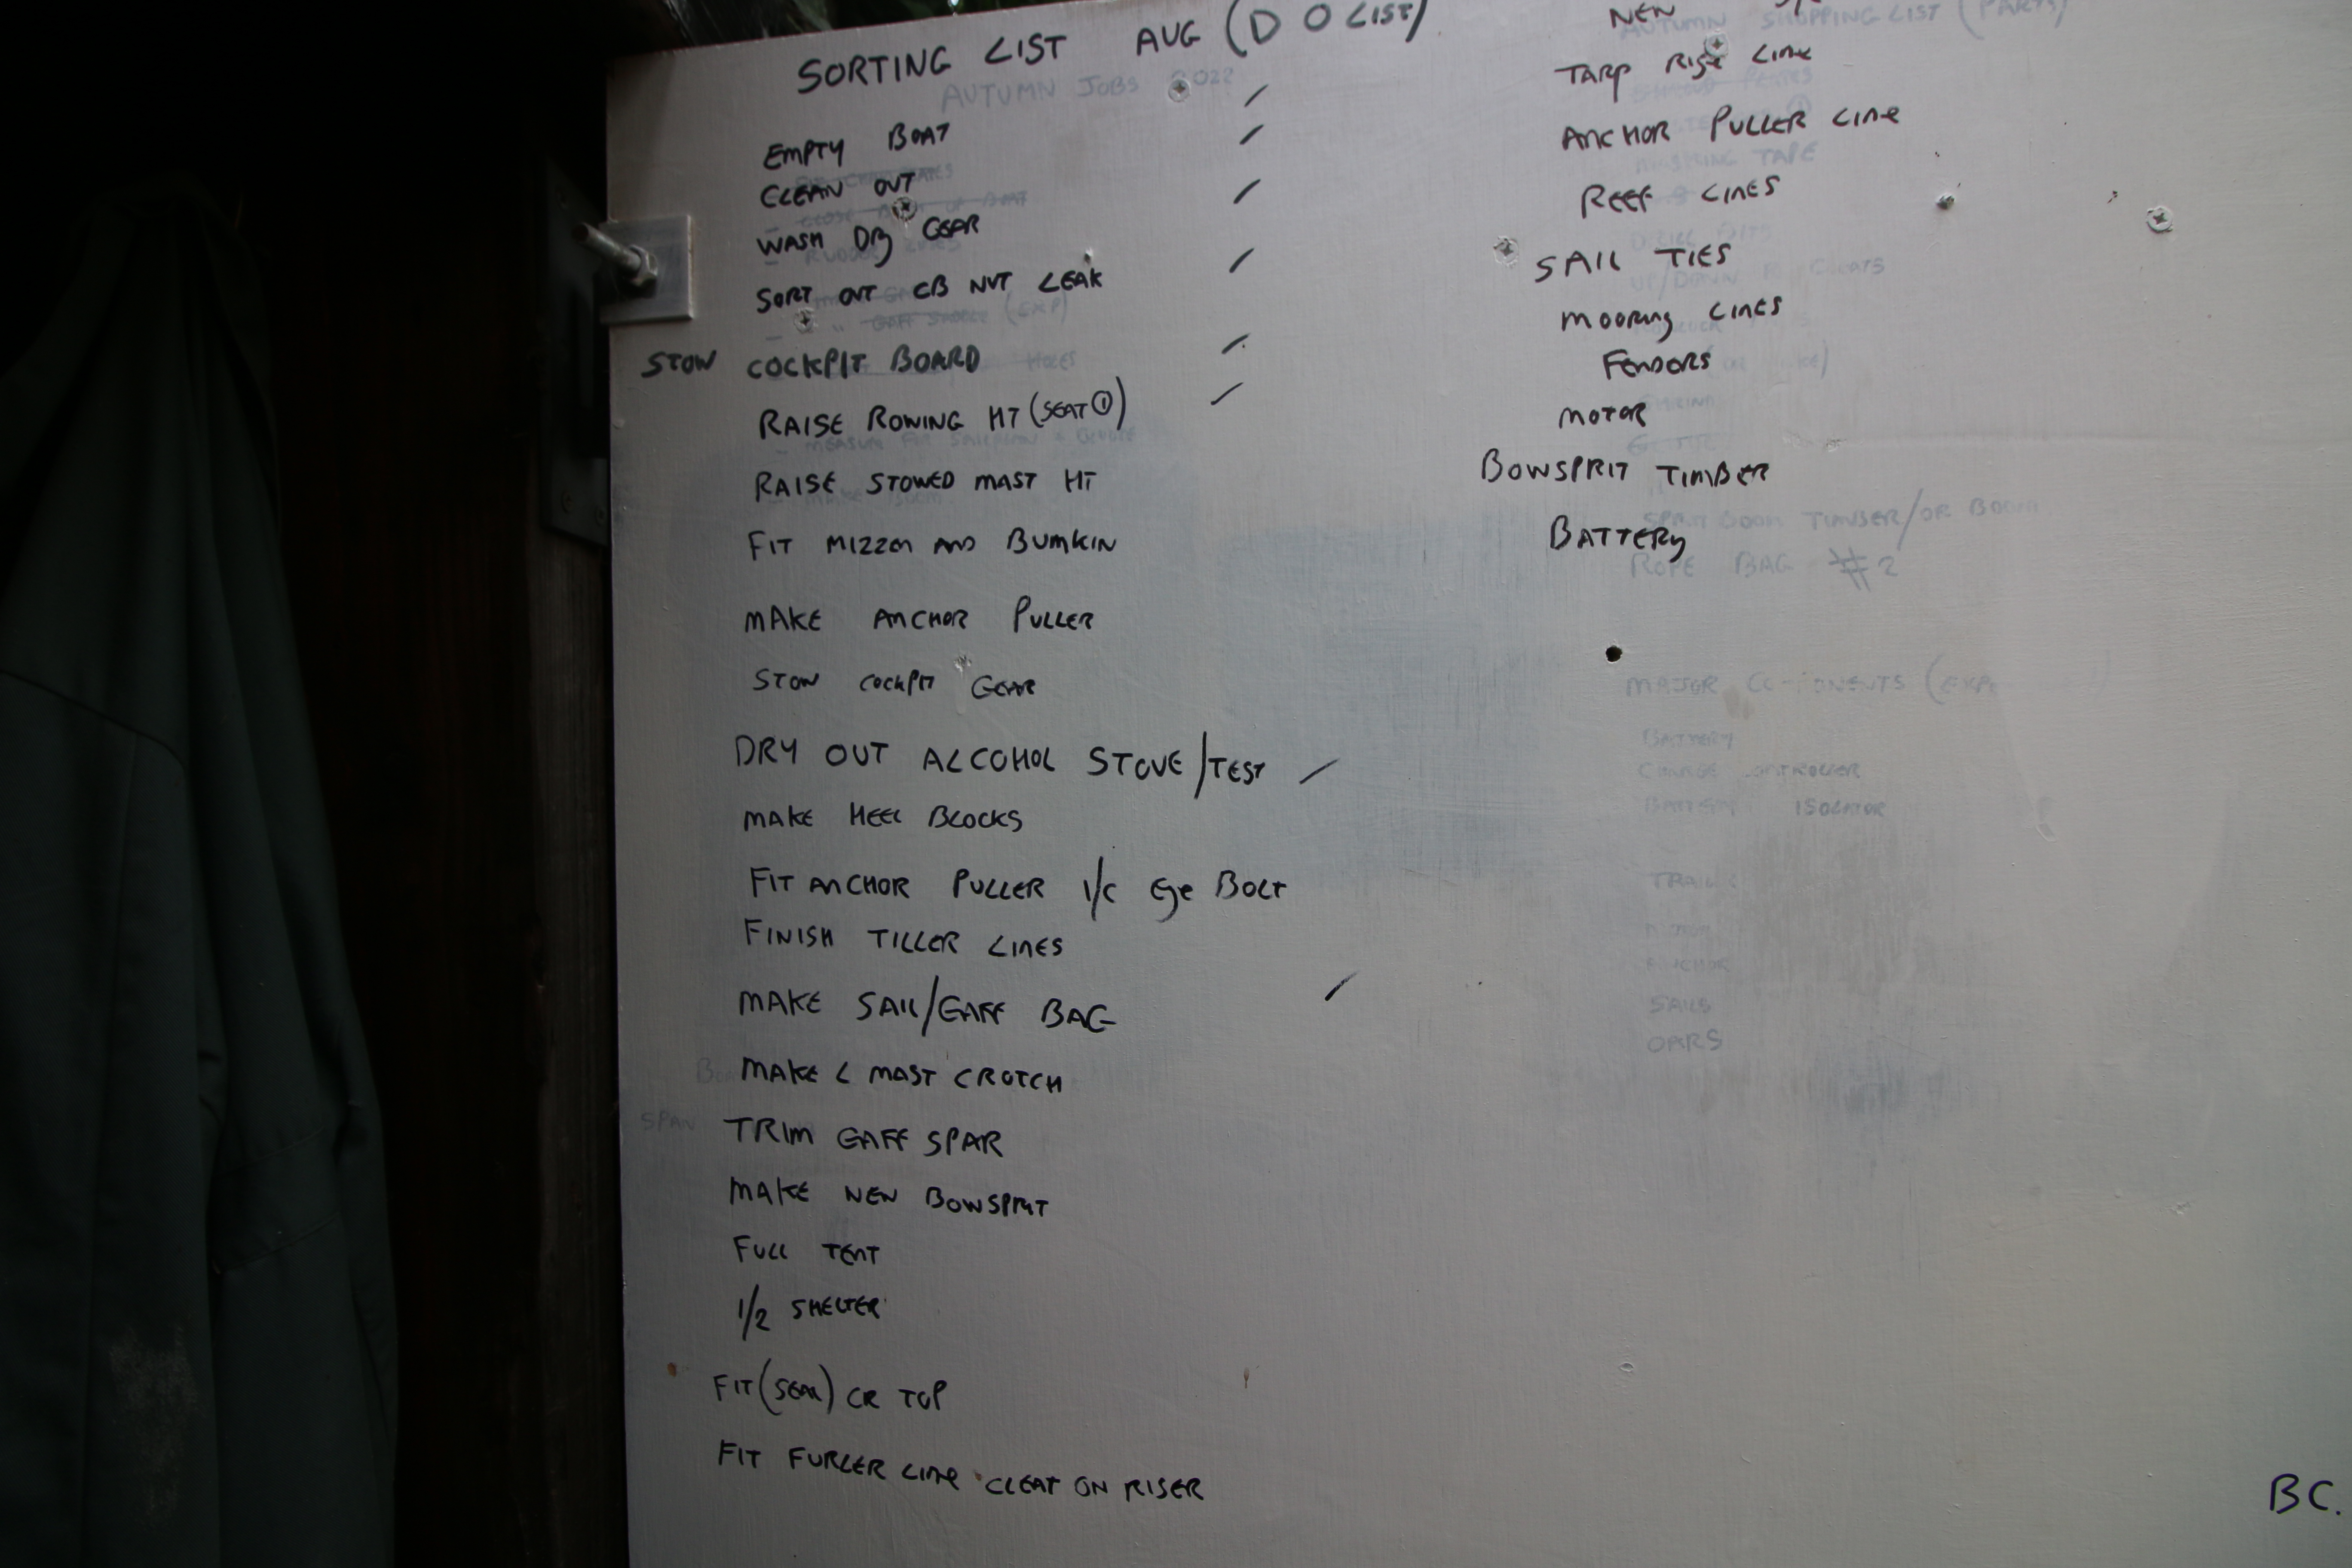 SORTING LIST AUG (D O LIST)
AUTUMN JOBS 2022
EMPTY BOAT /
CLEAN OUT /
WASH DRY GEAR /
SORT OUT CB NUT LEAK /
(EXP)
STOW COCKPIT BOARD /
HOLES
RAISE ROWING HT (SEAT ①) /
RAISE STOWED MAST HT
FIT MIZZEN AND BUMKIN
MAKE ANCHOR PULLER
STOW COCKPIT GEAR
DRY OUT ALCOHOL STOVE/TEST /
MAKE HEEL BLOCKS
FIT ANCHOR PULLER I/C EYE BOLT
FINISH TILLER LINES
MAKE SAIL/GAFF BAG /
MAKE L MAST CROTCH
SPAN
TRIM GAFF SPAR
MAKE NEW BOWSPRIT
FULL TENT
1/2 SHELTER
FIT (SEAL) CR TOP
FIT FURLER LINE CLEAT ON RISER
NEW
AUTUMN SHOPPING LIST (PARTS)
TARP RIGE LINE
ANCHOR PULLER LINE
MASKING TAPE
REEF LINES
SAIL TIES
MOORING LINES
FENDORS
MOTOR
BOWSPRIT TIMBER
TIMBER/OR BOOM
BATTERY
ROPE BAG #2
MAJOR COMPONENTS
BATTERY
CHARGE CONTROLLER
BATTERY ISOLATOR
ANCHOR
SAILS
OARS
BC.